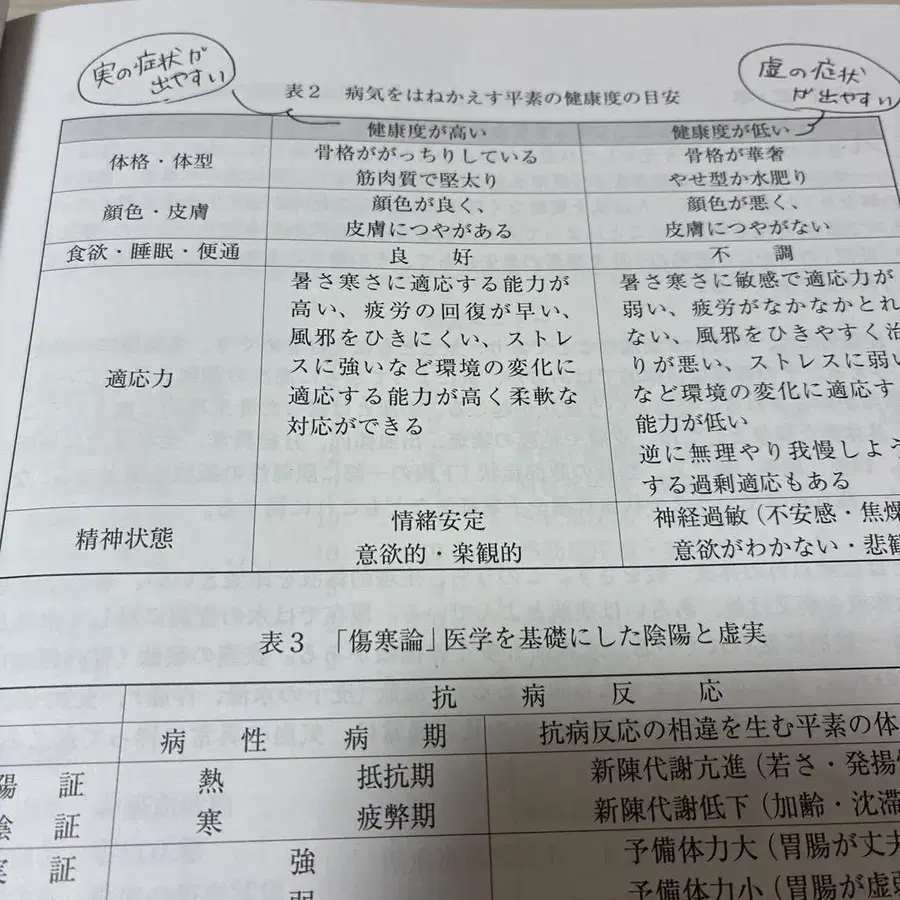 実の症状が
出やすい
虚の症状
が出やすい
表2 病気をはねかえす平素の健康度の目安
健康度が高い 健康度が低い
体格・体型 骨格ががっちりしている 骨格が華奢
筋肉質で堅太り やせ型か水肥り
顔色・皮膚 顔色が良く、 顔色が悪く、
皮膚につやがある 皮膚につやがない
食欲・睡眠・便通 良好 不調
適応力
暑さ寒さに適応する能力が
高い、疲労の回復が早い、
風邪をひきにくい、ストレ
スに強いなど環境の変化に
適応する能力が高く柔軟な
対応ができる
暑さ寒さに敏感で適応力が
弱い、疲労がなかなかとれ
ない、風邪をひきやすく治
りが悪い、ストレスに弱い
など環境の変化に適応す
能力が低い
逆に無理やり我慢しよう
する過剰適応もある
精神状態 情緒安定 神経過敏(不安感・焦燥
意欲的・楽観的 意欲がわかない・悲観
表3 「傷寒論」医学を基礎にした陰陽と虚実
抗病反応
病性 病期 抗病反応の相違を生む平素の体
陽証 熱 抵抗期 新陳代謝亢進(若さ・発揚
陰証 寒 疲弊期 新陳代謝低下(加齢・沈滞
実証 強 予備体力大(胃腸が丈夫
予備体力小(胃腸が虚